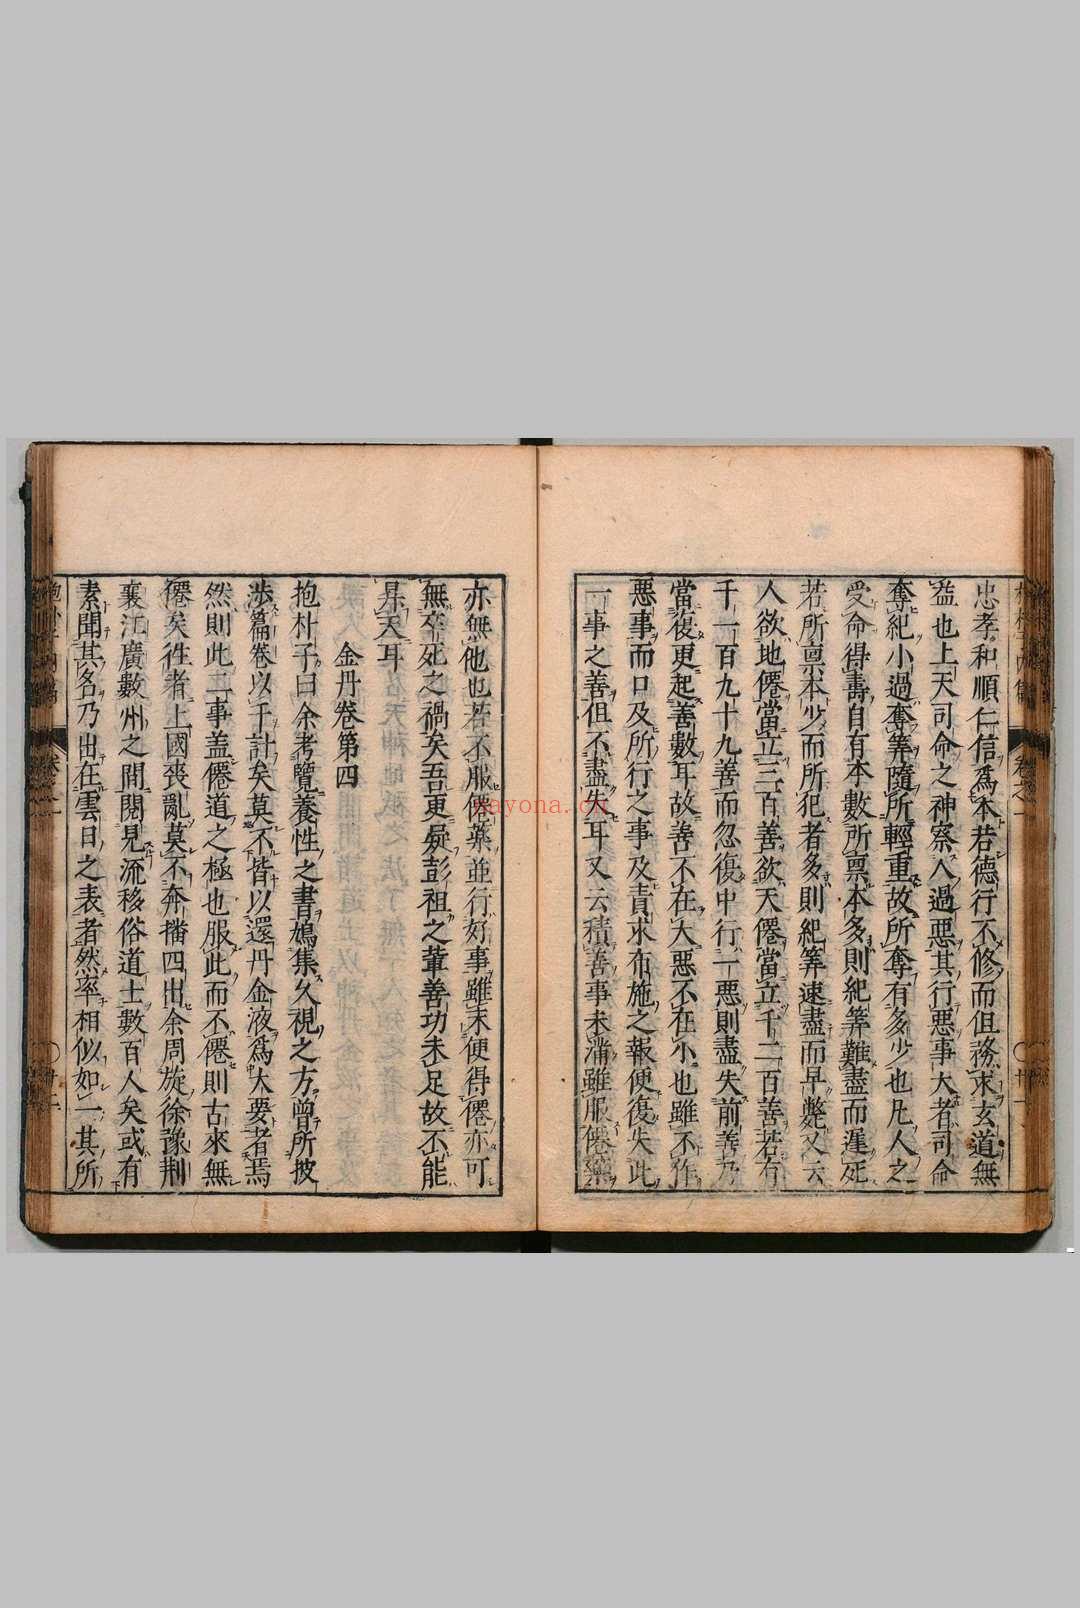 忠孝和順仁信爲本若德行不修而但務求玄道無
益也上天司命之神察人過惡其行惡事大者司命
奪紀小過奪筭隨所輕重故所奪有多少也凡人之
受命得壽自有本數所禀本多則紀筭難盡而遲死
若所禀本少而所犯者多則紀筭速盡而早斃又云
人欲地僊當立三百善欲天僊當立千二百善若有
千一百九十九善而忽復中行一惡則盡失前善乃
當復更起善數耳故善不在大惡不在小也雖不作
惡事而口及所行之事及責求布施之報便復失此
一事之善但不盡失耳又云積善事未滿雖服僊藥
亦無他也若不服僊藥並行好事雖未便得僊亦可
無卒死之禍矣吾更疑彭祖之輩善功未足故不能
昇天耳
金丹卷第四
抱朴子曰余考覽養性之書鳩集久視之方曾所披
涉篇卷以千計矣莫不皆以還丹金液爲大要者焉
然則此二事盖僊道之極也服此而不僊則古來無
僊矣徃者上國喪亂莫不奔播四出余周旋徐豫荆
襄江廣數州之間閱見流移俗道士數百人矣或有
素聞其名乃出在雲日之表者然率相似如一其所
xayona.cn